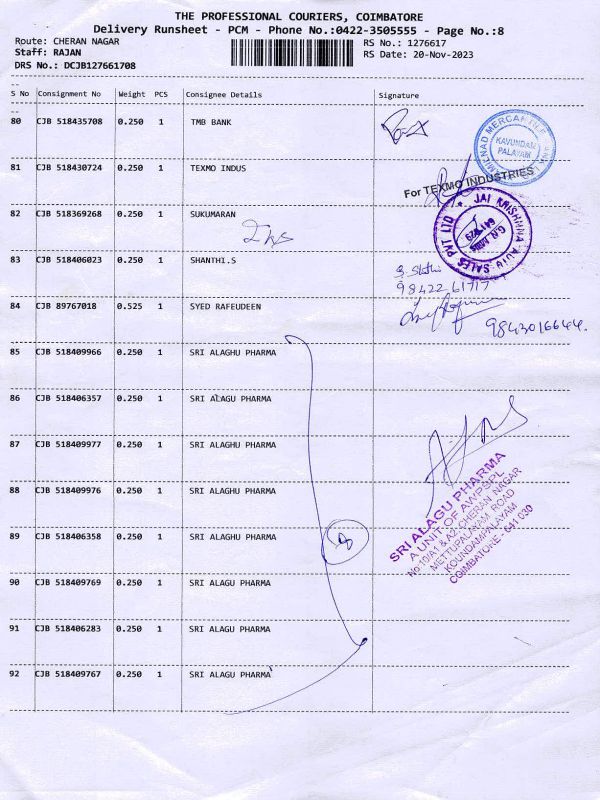 THE PROFESSIONAL COURIERS, COIMBATORE
Delivery Runsheet - PCM - Phone No.:0422-3505555 - Page No.:8
Route: CHERAN NAGAR RS No.: 1276617
Staff: RAJAN RS Date: 20-Nov-2023
DRS No.: DCJB127661708
S No Consignment No Weight PCS Consignee Details Signature
80 CJB 518435708 0.250 1 TMB BANK
KAVUNDAM
PALAYAM
81 CJB 518430724 0.250 1 TEXMO INDUS
For TEXMO INDUSTRIES
82 CJB 518369268 0.250 1 SUKUMARAN
JAI KRISHNNA AUTO SALES PVT LTD
83 CJB 518406023 0.250 1 SHANTHI.S
98422 61717
84 CJB 89767018 0.525 1 SYED RAFEUDEEN
9843016644.
85 CJB 518409966 0.250 1 SRI ALAGHU PHARMA
86 CJB 518406357 0.250 1 SRI ALAGU PHARMA
87 CJB 518409977 0.250 1 SRI ALAGHU PHARMA
88 CJB 518409976 0.250 1 SRI ALAGHU PHARMA
89 CJB 518406358 0.250 1 SRI ALAGHU PHARMA
8
SRI ALAGU PHARMA
A UNIT OF AWPSPL
No 10/A1 & A2, CHERAN NAGAR
METTUPALAYAM ROAD
KOUNDAMPALAYAM
COIMBATORE - 641 030
90 CJB 518409769 0.250 1 SRI ALAGU PHARMA
91 CJB 518406283 0.250 1 SRI ALAGU PHARMA
92 CJB 518409767 0.250 1 SRI ALAGU PHARMA